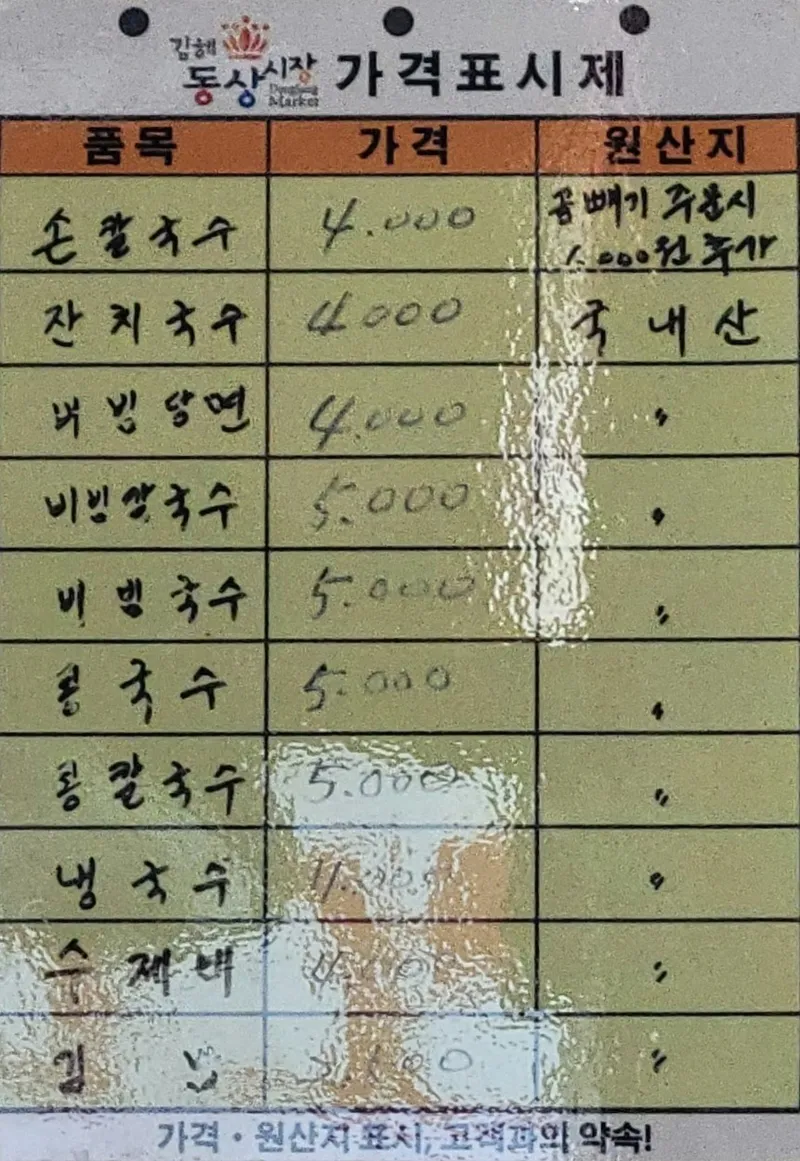 김해
동상시장 가격표시제
Dongsang
Market
품목 가격 원산지
손칼국수 4.000 곱빼기 주문시
1.000원 추가
잔치국수 4000 국내산
비빔당면 4.000 〃
비빔칼국수 5.000 〃
비빔국수 5.000 〃
콩국수 5.000 〃
콩칼국수 5.000 〃
냉국수 4.000 〃
수제비 〃
김밥 〃
가격·원산지 표시, 고객과의 약속!